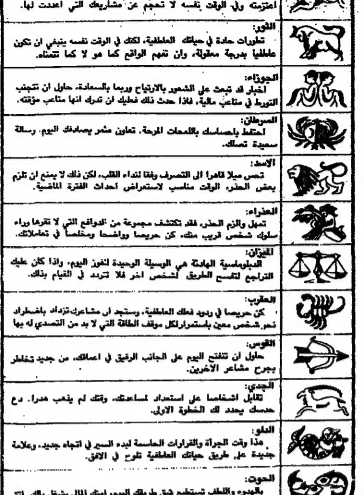 اعتزمته وفي الوقت نفسه لا تحجم عن مشاريعك التي اعددت لها.
الثور:
تطورات حادة في حياتك العاطفية، لكنك في الوقت نفسه ينبغي ان تكون
عاطفيا بدرجة معقولة، وان تفهم الواقع كما هو لا كما تتمناه.
الجوزاء:
اخبار قد تبعث على الشعور بالارتياح وربما بالسعادة، حاول ان تتجنب
التورط في متاعب مالية، فاذا حدث ذلك فعليك ان تدرك انها متاعب مؤقته.
السرطان:
احتفظ باحساسك باللمحات المرحة. تعاون مثمر يصادفك اليوم. رسالة
سعيدة تصلك.
الاسد:
تحس ميلا قاهرا الى التصرف وفقا لنداء القلب، لكن ذلك لا يمنع ان تلزم
بعض الحذر، الوقت مناسب لاستعراض احداث الفترة الماضية.
العذراء:
تمهل والزم الحذر، فقد تكتشف مجموعة من الدوافع التي لا تقرها وراء
سلوك شخص قريب منك، كن حريصا وواضحا ومخلصا في تعاملاتك.
الميزان:
الدبلوماسية الهادئة هي الوسيلة الوحيدة لتفوز اليوم، واذا كان عليك
التراجع لتفسح الطريق لشخص اخر فلا تتردد في القيام بذلك.
العقرب:
كن حريصا في ردود فعلك العاطفية، وستجد أن مشاعرك تزداد باضطراد
نحو شخص معين باستمرار لكل موقف الطاقة التي لا بد من التصدي له بها
القوس:
حاول ان تنفتح اليوم على الجانب الرقيق في اعماقك، من جديد تخاطر
بجرح مشاعر الاخرين.
الجدي:
تقابل اشخاصا على استعداد لمساعدتك، وقتك لم يذهب هدرا. دع
حدسك يحدد لك الخطوة الاولى.
الدلو:
هذا وقت الجرأة والقرارات الحاسمة لبدء السير في اتجاه جديد، وعلامة
جديدة على طريق حياتك العاطفية تلوح في الافق.
الحوت:
بالهدوء واللطف تستطيع شق طريقك اليوم،